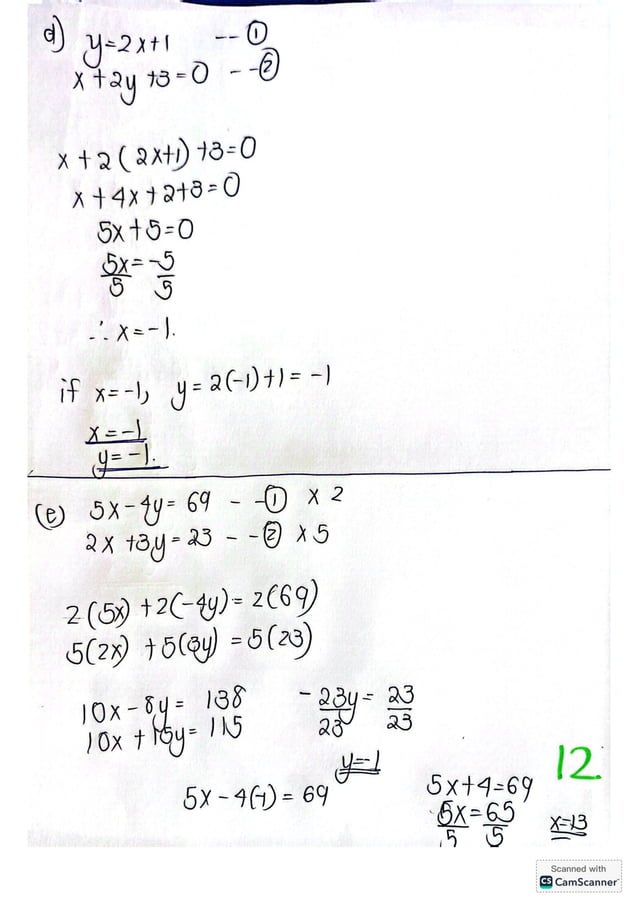 d) y=2x+1 -- ①
x+2y+3=0 -- ②
x+2(2x+1)+3=0
x+4x+2+3=0
5x+5=0
5x=-5
5 5
∴ x=-1.
if x=-1, y=2(-1)+1=-1
x=-1
y=-1.
(e) 5x-4y=69 --① x2
2x+3y=23 --② x5
2(5x)+2(-4y)=2(69)
5(2x)+5(3y)=5(23)
10x-8y=138
10x+15y=115
-23y=23
23 23
y=-1
5x-4(-1)=69
5x+4=69
5x=65
5 5
x=13
12.
Scanned with
CS CamScanner